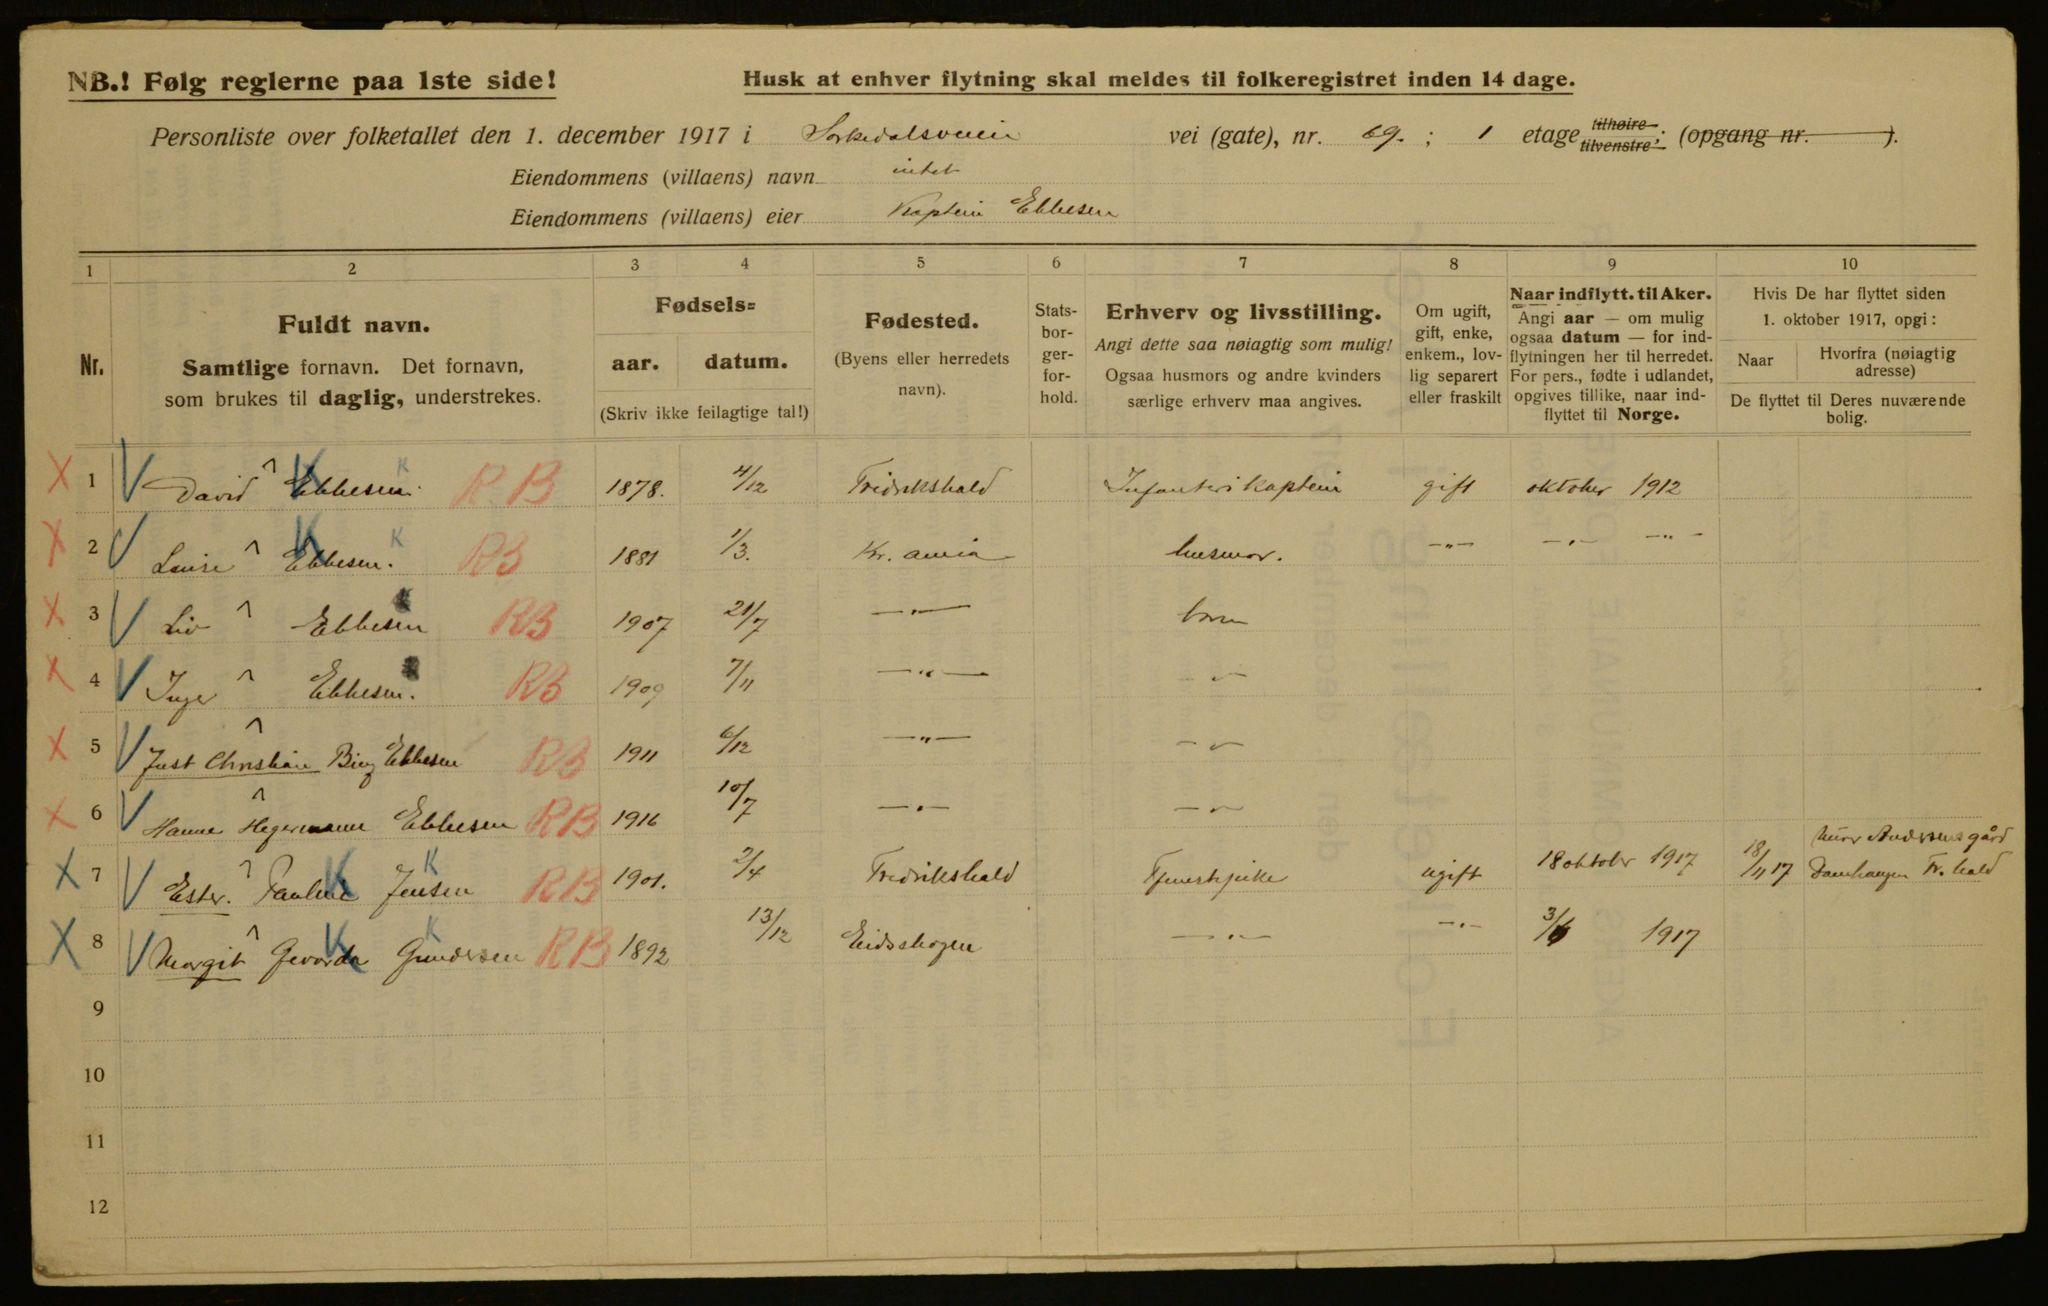 NB.! Følg reglerne paa 1ste side!
Husk at enhver flytning skal meldes til folkeregistret inden 14 dage.
Personliste over folketallet den 1. december 1917 i Sørkedalsveien vei (gate), nr. 69. ; 1 etage tilhøire tilvenstre ; (opgang nr. ).
Eiendommens (villaens) navn intet
Eiendommens (villaens) eier Kaptein Ebbesen
1 2 3 4 5 6 7 8 9 10
Nr.
Fuldt navn.
Samtlige fornavn. Det fornavn,
som brukes til daglig, understrekes.
Fødsels=
aar. datum.
(Skriv ikke feilagtige tal!)
Fødested.
(Byens eller herredets
navn).
Stats-
bor-
ger-
for-
hold.
Erhverv og livsstilling.
Angi dette saa nøiagtig som mulig!
Ogsaa husmors og andre kvinders
særlige erhverv maa angives.
Om ugift,
gift, enke,
enkem., lov-
lig separert
eller fraskilt
Naar indflytt. til Aker.
Angi aar — om mulig
ogsaa datum — for ind-
flytningen her til herredet.
For pers., fødte i udlandet,
opgives tillike, naar ind-
flyttet til Norge.
Hvis De har flyttet siden
1. oktober 1917, opgi:
Naar
Hvorfra (nøiagtig
adresse)
De flyttet til Deres nuværende
bolig.
X 1 V David Ebbesen. K K R.B 1878. 4/12 Fredrikshald Infanterikaptein gift oktober 1912
X 2 V Louise Ebbesen. K K RB 1881 1/3. Kr.ania husmor. —"— —"— —"—
X 3 V Liv Ebbesen K RB 1907 21/7 —"— barn
X 4 V Inger Ebbesen. RB 1909 7/11 —"— —"—
X 5 V Just Christian Bing Ebbesen RB 1911 6/12 —"— —"—
X 6 V Hanne Hegermann Ebbesen RB 1916 10/7 —"— —"—
X 7 V Ester. Pauline Jensen K K RB 1901. 2/4 Fredrikshald Tjenestepike ugift 18 oktober 1917 18/11 17 Murer Andersens gård
Damhaugen Fr.hald
X 8 V Margit Gevorda Gundersen K K RB 1892 13/12 Eidsskogen —"— —"— 3/6 1917
9
10
11
12